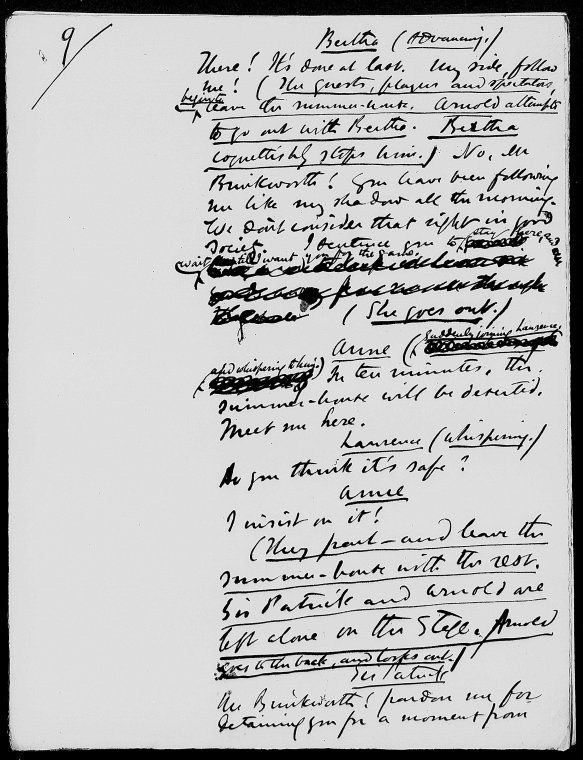 9
Bertha (Advancing.)
There! It's done at last. My side, follow
me! (The guests, players and spectators,
begin to
leave the summer-house. Arnold attempts
to go out with Bertha. Bertha
coquettishly stops him.) No, Mr
Brinkworth! You have been following
me like my shadow all the morning.
We don't consider that right in good
Society. I sentence you to stay here, and
wait until I want you for the game.
(She goes out.)
Anne (Suddenly joining Lawrence,
and whispering to him.) In ten minutes, the
summer-house will be deserted.
Meet me here.
Lawrence (Whispering.)
Do you think it's safe?
Anne
I insist on it!
(They part – and leave the
summer-house with the rest.
Sir Patrick and Arnold are
left alone on the Stage. Arnold
goes to the back, and looks out.)
Sir Patrick
Mr Brinkworth! pardon me for
detaining you for a moment from